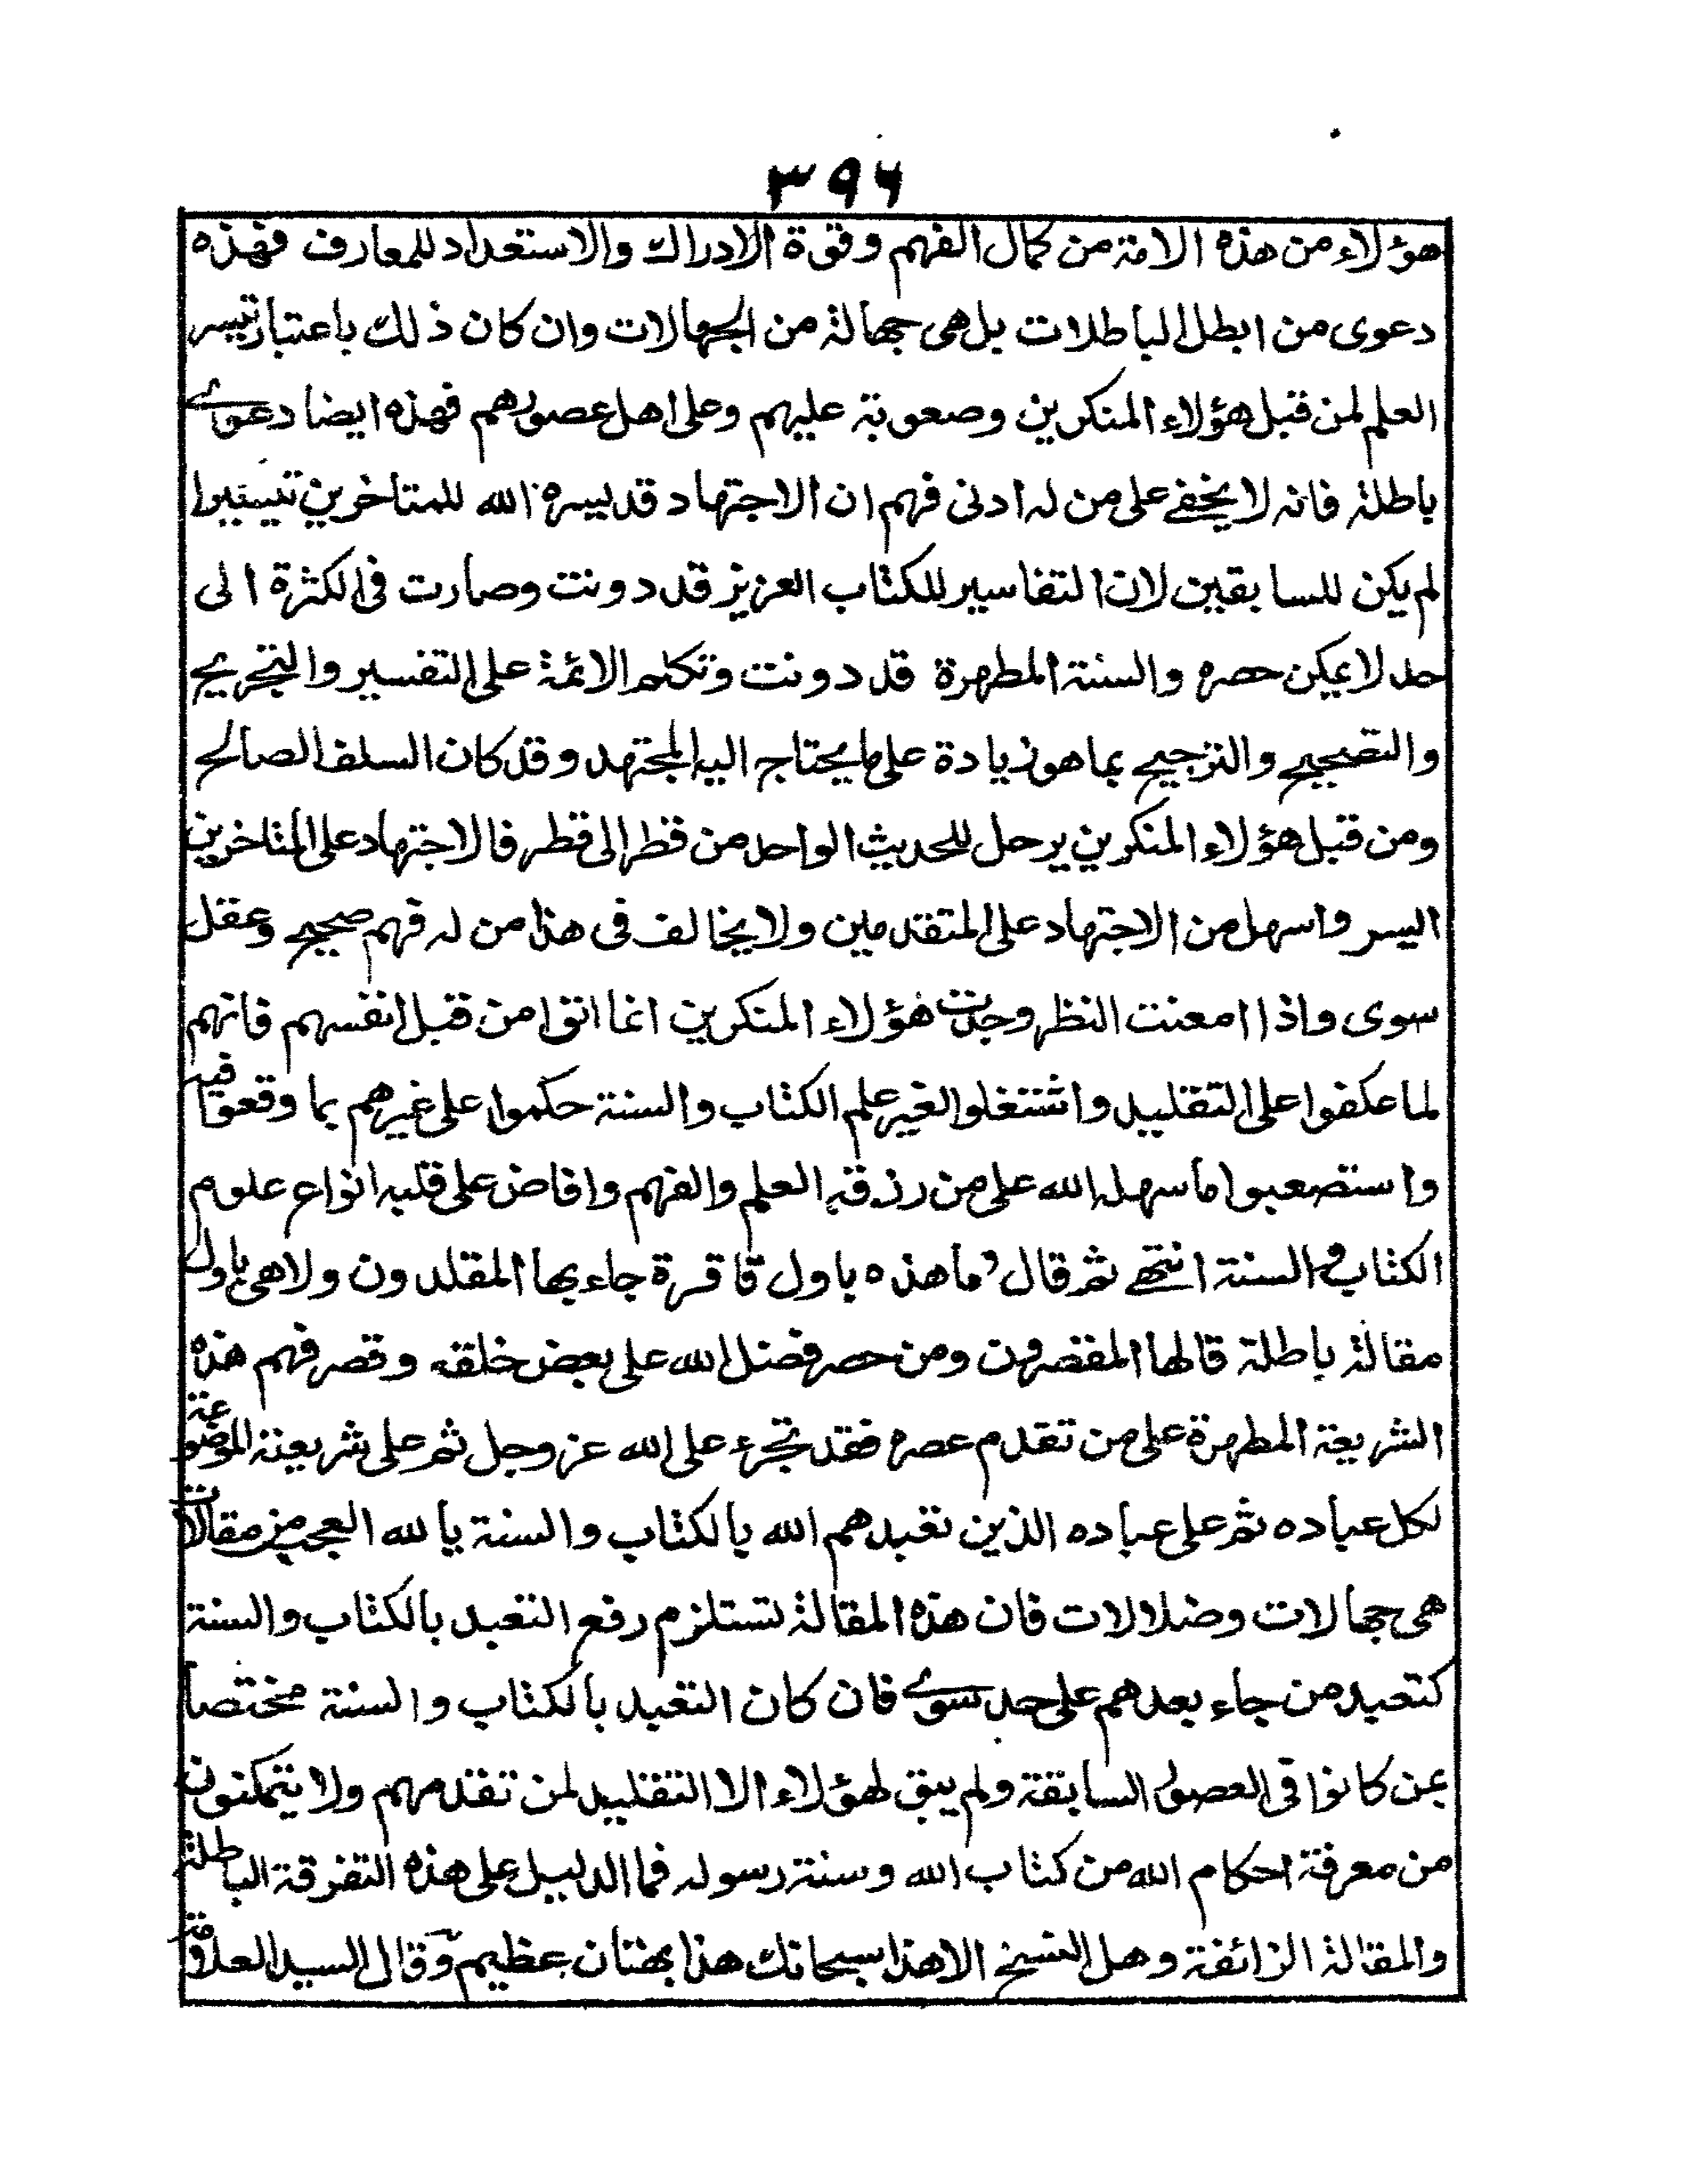 ٣٩٦
هؤلاء من هذه الامة من كمال الفهم وقوة الادراك والاستعداد للمعارف فهذه
دعوى من ابطل الباطلات بل هى جهالة من الجهالات وان كان ذلك باعتبار تيسر
العلم لمن قبل هؤلاء المنكرين وصعوبته عليهم وعلى اهل عصورهم فهذه ايضا دعوے
باطلة فانه لا يخفے على من له ادنى فهم ان الاجتهاد قد يسره الله للمتاخرين تيسيرا
لم يكن للسابقين لان التفاسير للكتاب العزيز قد دونت وصارت فى الكثرة الى
حد لا يمكن حصره والسنة المطهرة قد دونت وتكلم الائمة على التفسير والتجريح
والتصحيح والترجيح بما هو زيادة على ما يحتاج اليه المجتهد وقد كان السلف الصالح
ومن قبل هؤلاء المنكرين يرحل للحديث الواحد من قطر الى قطر فالاجتهاد على المتاخرين
ايسر واسهل من الاجتهاد على المتقدمين ولا يخالف فى هذا من له فهم صحيح وعقل
سوى واذا امعنت النظر وجدت هؤلاء المنكرين انما اتوا من قبل انفسهم فانهم
لما عكفوا على التقليد واشتغلوا بغير علم الكتاب والسنة حكموا على غيرهم بما وقعوا فيه
واستصعبوا ما سهله الله على من رزقه العلم والفهم وافاض على قلبه انواع علوم
الكتاب والسنة انتهے ثم قال وما هذه باول فاقرة جاء بها المقلدون ولا هى باول
مقالة باطلة قالها المقصرون ومن حصر فضل الله على بعض خلقه وقصر فهم هذه
الشريعة المطهرة على من تقدم عصره فقد تجرء على الله عز وجل ثم على شريعته الموضوعة
لكل عباده ثم على عباده الذين تعبدهم الله بالكتاب والسنة يا لله العجب من مقالات
هى جهالات وضلالات فان هذه المقالة تستلزم رفع التعبد بالكتاب والسنة
كتعبد من جاء بعدهم على حد سوے فان كان التعبد بالكتاب والسنة مختصا
بمن كانوا فى العصور السابقة ولم يبق لهؤلاء الا التقليد لمن تقدمهم ولا يتمكنون
من معرفة احكام الله من كتاب الله وسنة رسوله فما الدليل على هذه التفرقة الباطلة
والمقالة الزائفة وهل النسخ الا هذا سبحانك هذا بهتان عظيم وقال السيد العلامة